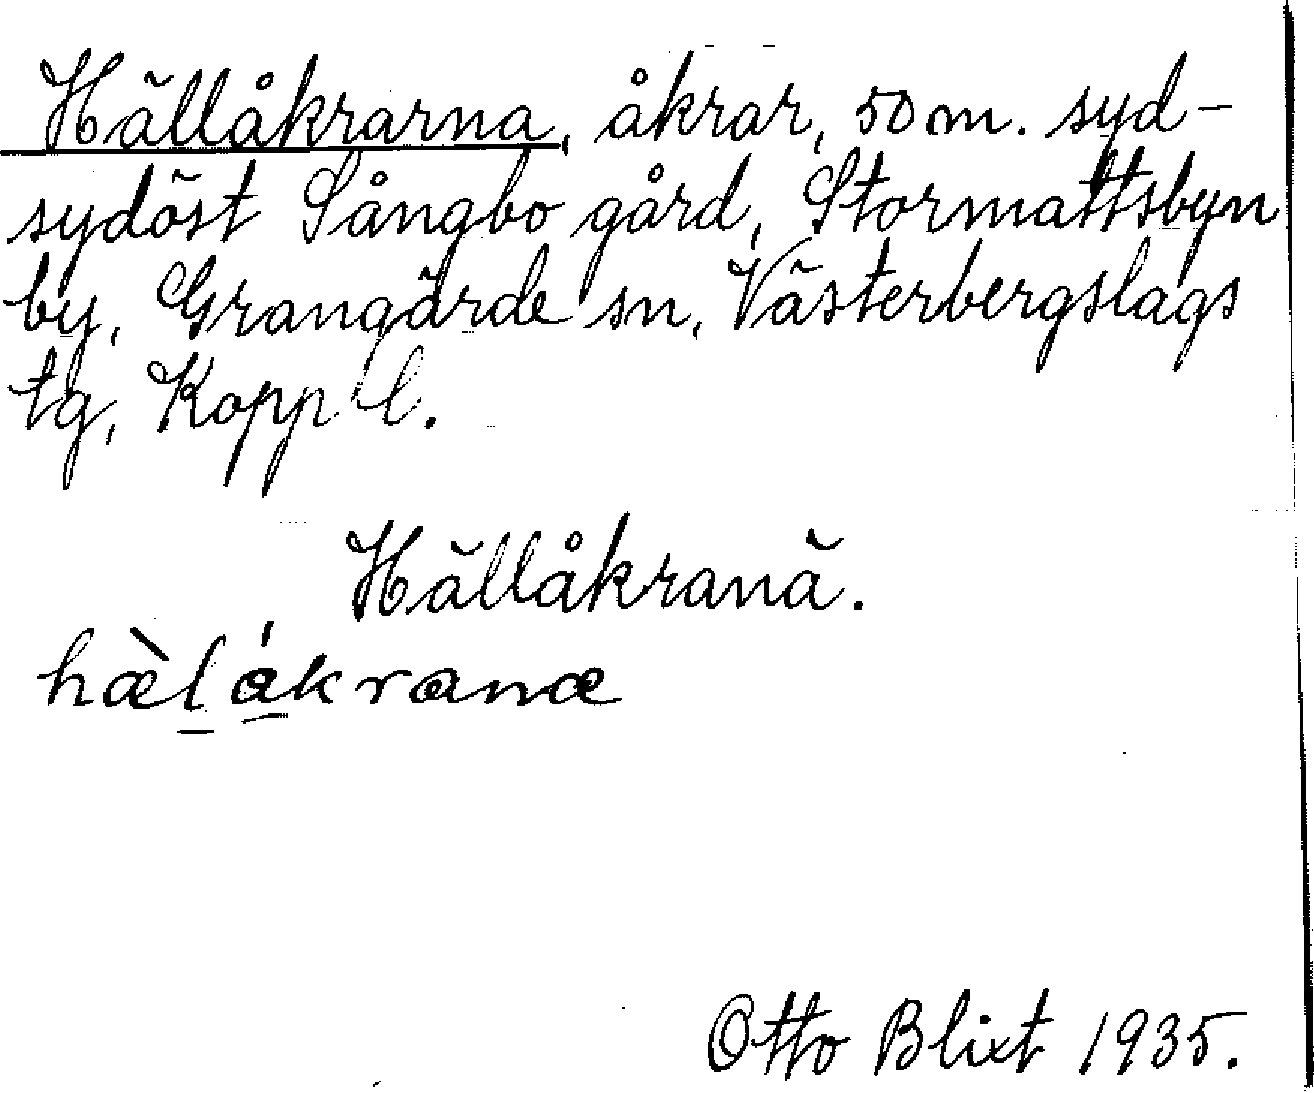 Hällåkrarna, åkrar, 50 m. syd-
sydöst Sångbo gård, Stormattsbyn
by, Grangärde sn, Västerbergslags
tg, Kopp l.
Hällåkranä.
hæ̀lákranæ
Otto Blixt 1935.